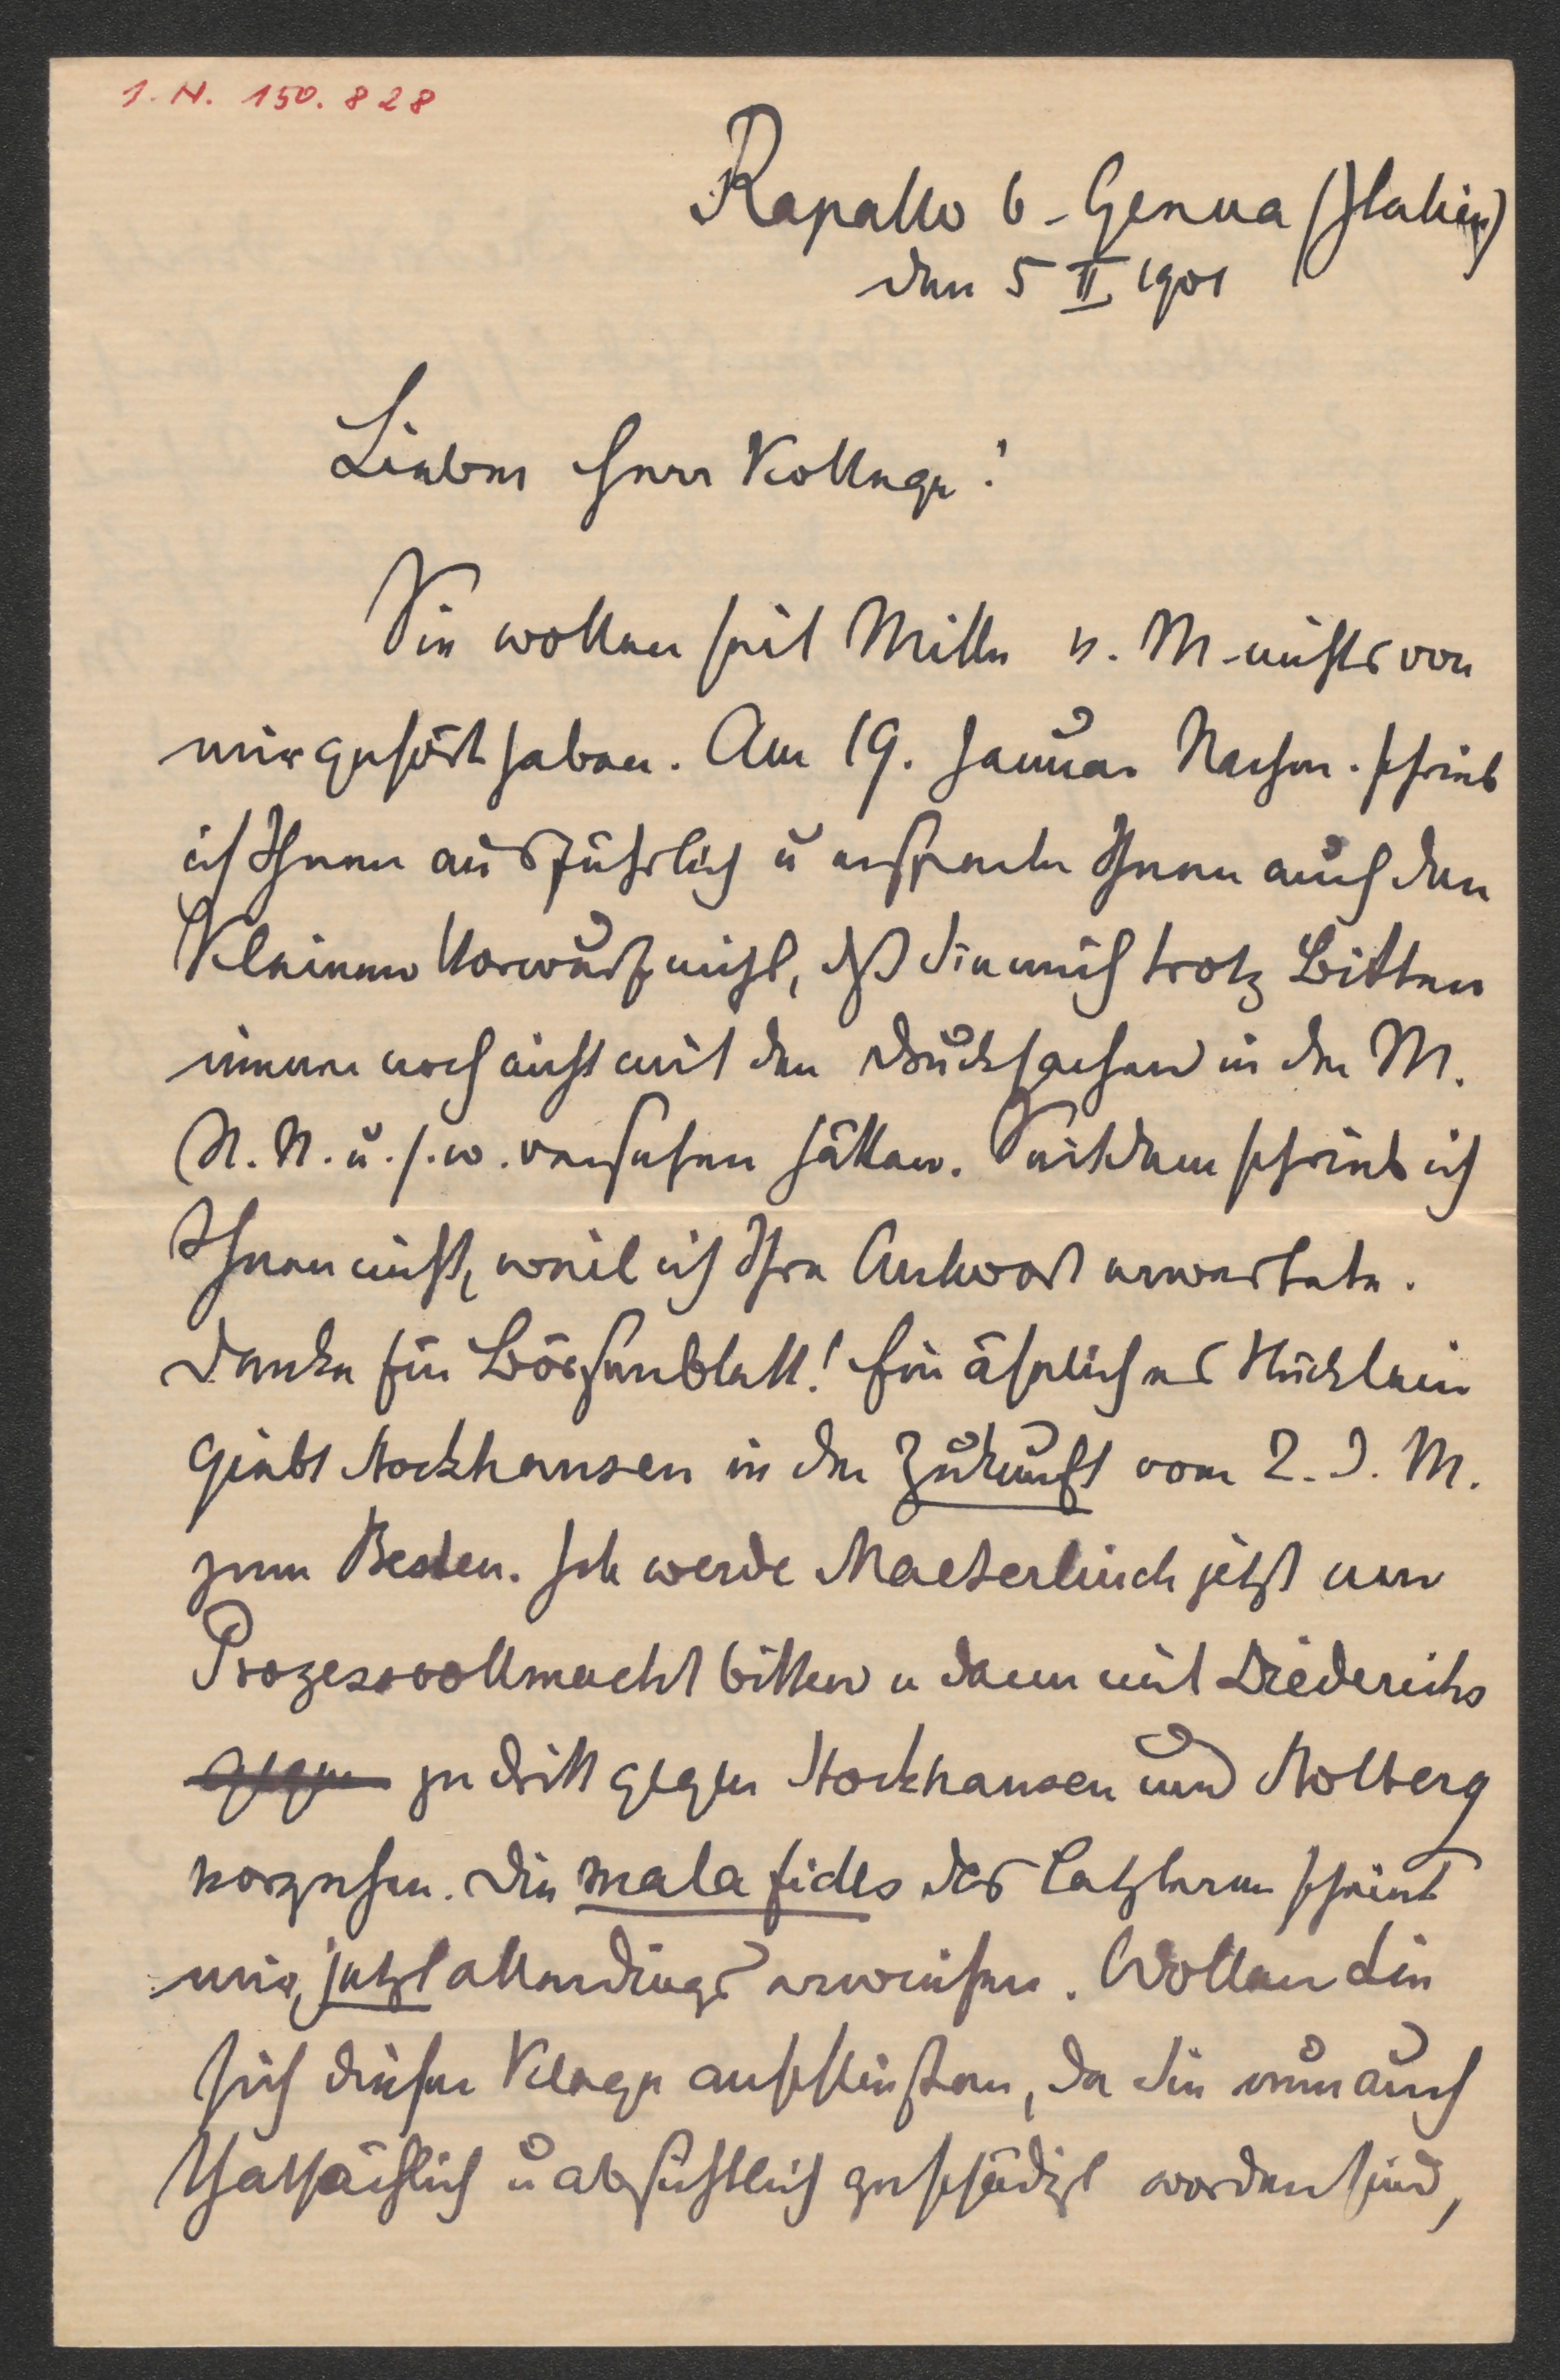 I. N. 150.828
Rapallo b. Genua (Italien)
den 5 II 1901
Lieber Herr Kollege!
Sie wollen seit Mitte v. M. nichts von
mir gehört haben. Am 19. Januar Nachm. schrieb
ich Ihnen ausführlich u ersparte Ihnen auch den
kleinen Vorwurf nicht, dß Sie mich trotz Bitten
immer noch nicht mit den Drucksachen in den M.
N. N. u. s. w. versehen hätten. Seitdem schrieb ich
Ihnen nicht, weil ich Ihre Antwort erwartete.
Danke für Börsenblatt! Ein ähnliches Stücklein
giebt Stockhausen in der Zukunft vom 2. d. M.
zum Besten. Ich werde Maeterlinck jetzt um
Prozessvollmacht bitten u dann mit Diederichs
gegen zu dritt gegen Stockhausen und Stolberg
vorgehen. Die mala fides des letzteren scheint
mir jetzt allerdings erwiesen. Wollen Sie
sich dieser Klage anschließen, da Sie nun auch
thatsächlich u absichtlich geschädigt worden sind,